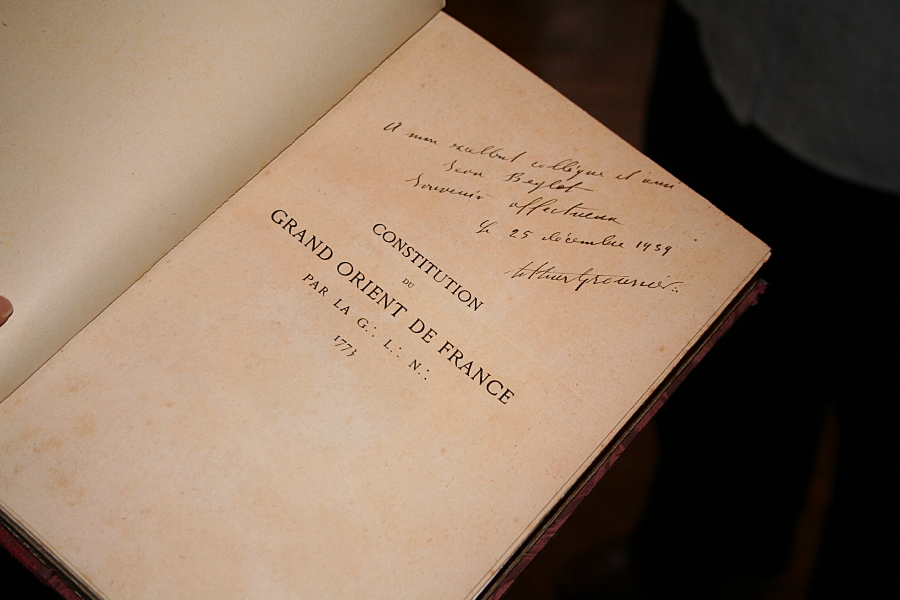 A mon excellent collègue et ami
Jean Beylot
Souvenir affectueux
Le 25 décembre 1939
Arthur Groussier
CONSTITUTION
DU
GRAND ORIENT DE FRANCE
PAR LA G∴ L∴ N∴
1773